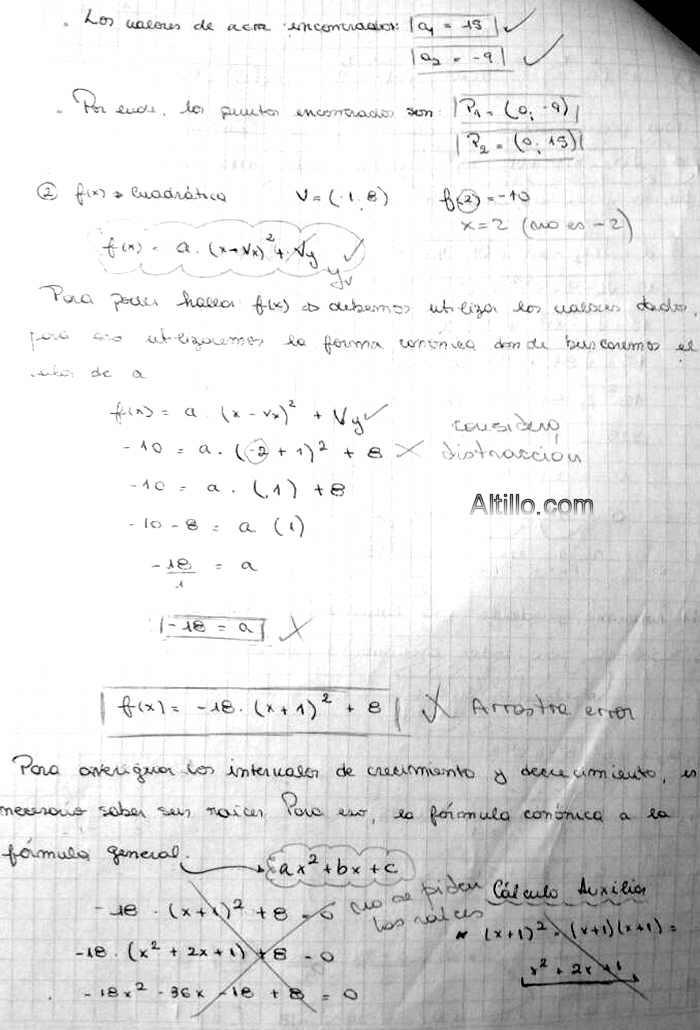 . Los valores de a era encontrados: |a₁ = 15| ✓
|a₂ = -9| ✓
. Por ende, los puntos encontrados son: |P₁ = (0; -9)|
|P₂ = (0; 15)|
② f(x) → Cuadrática V = (-1; 8) f(2) = -10
x = 2 (no es -2)
f(x) = a . (x - Vx)² + Vy ✓
yv
Para poder hallar f(x) → debemos utilizar los valores dados,
para eso utilizaremos la forma canónica donde buscaremos el
valor de a
f(x) = a . (x - Vx)² + Vy ✓
-10 = a . (-2 + 1)² + 8 X considero distracción
-10 = a . (.1) + 8
Altillo.com
-10 - 8 = a (1)
-18/1 = a
|-18 = a| X
|f(x) = -18 . (x + 1)² + 8| X Arrastra error
Para averiguar los intervalos de crecimiento y decrecimiento, es
necesario saber sus raíces. Para eso, la fórmula canónica a la
fórmula general. → ax² + bx + c
no se piden las raíces
Cálculo Auxiliar
-18 . (x+1)² + 8 = 0
* (x+1)² = (x+1)(x+1) =
-18 . (x² + 2x + 1) + 8 = 0
x² + 2x + 1
-18x² - 36x - 18 + 8 = 0